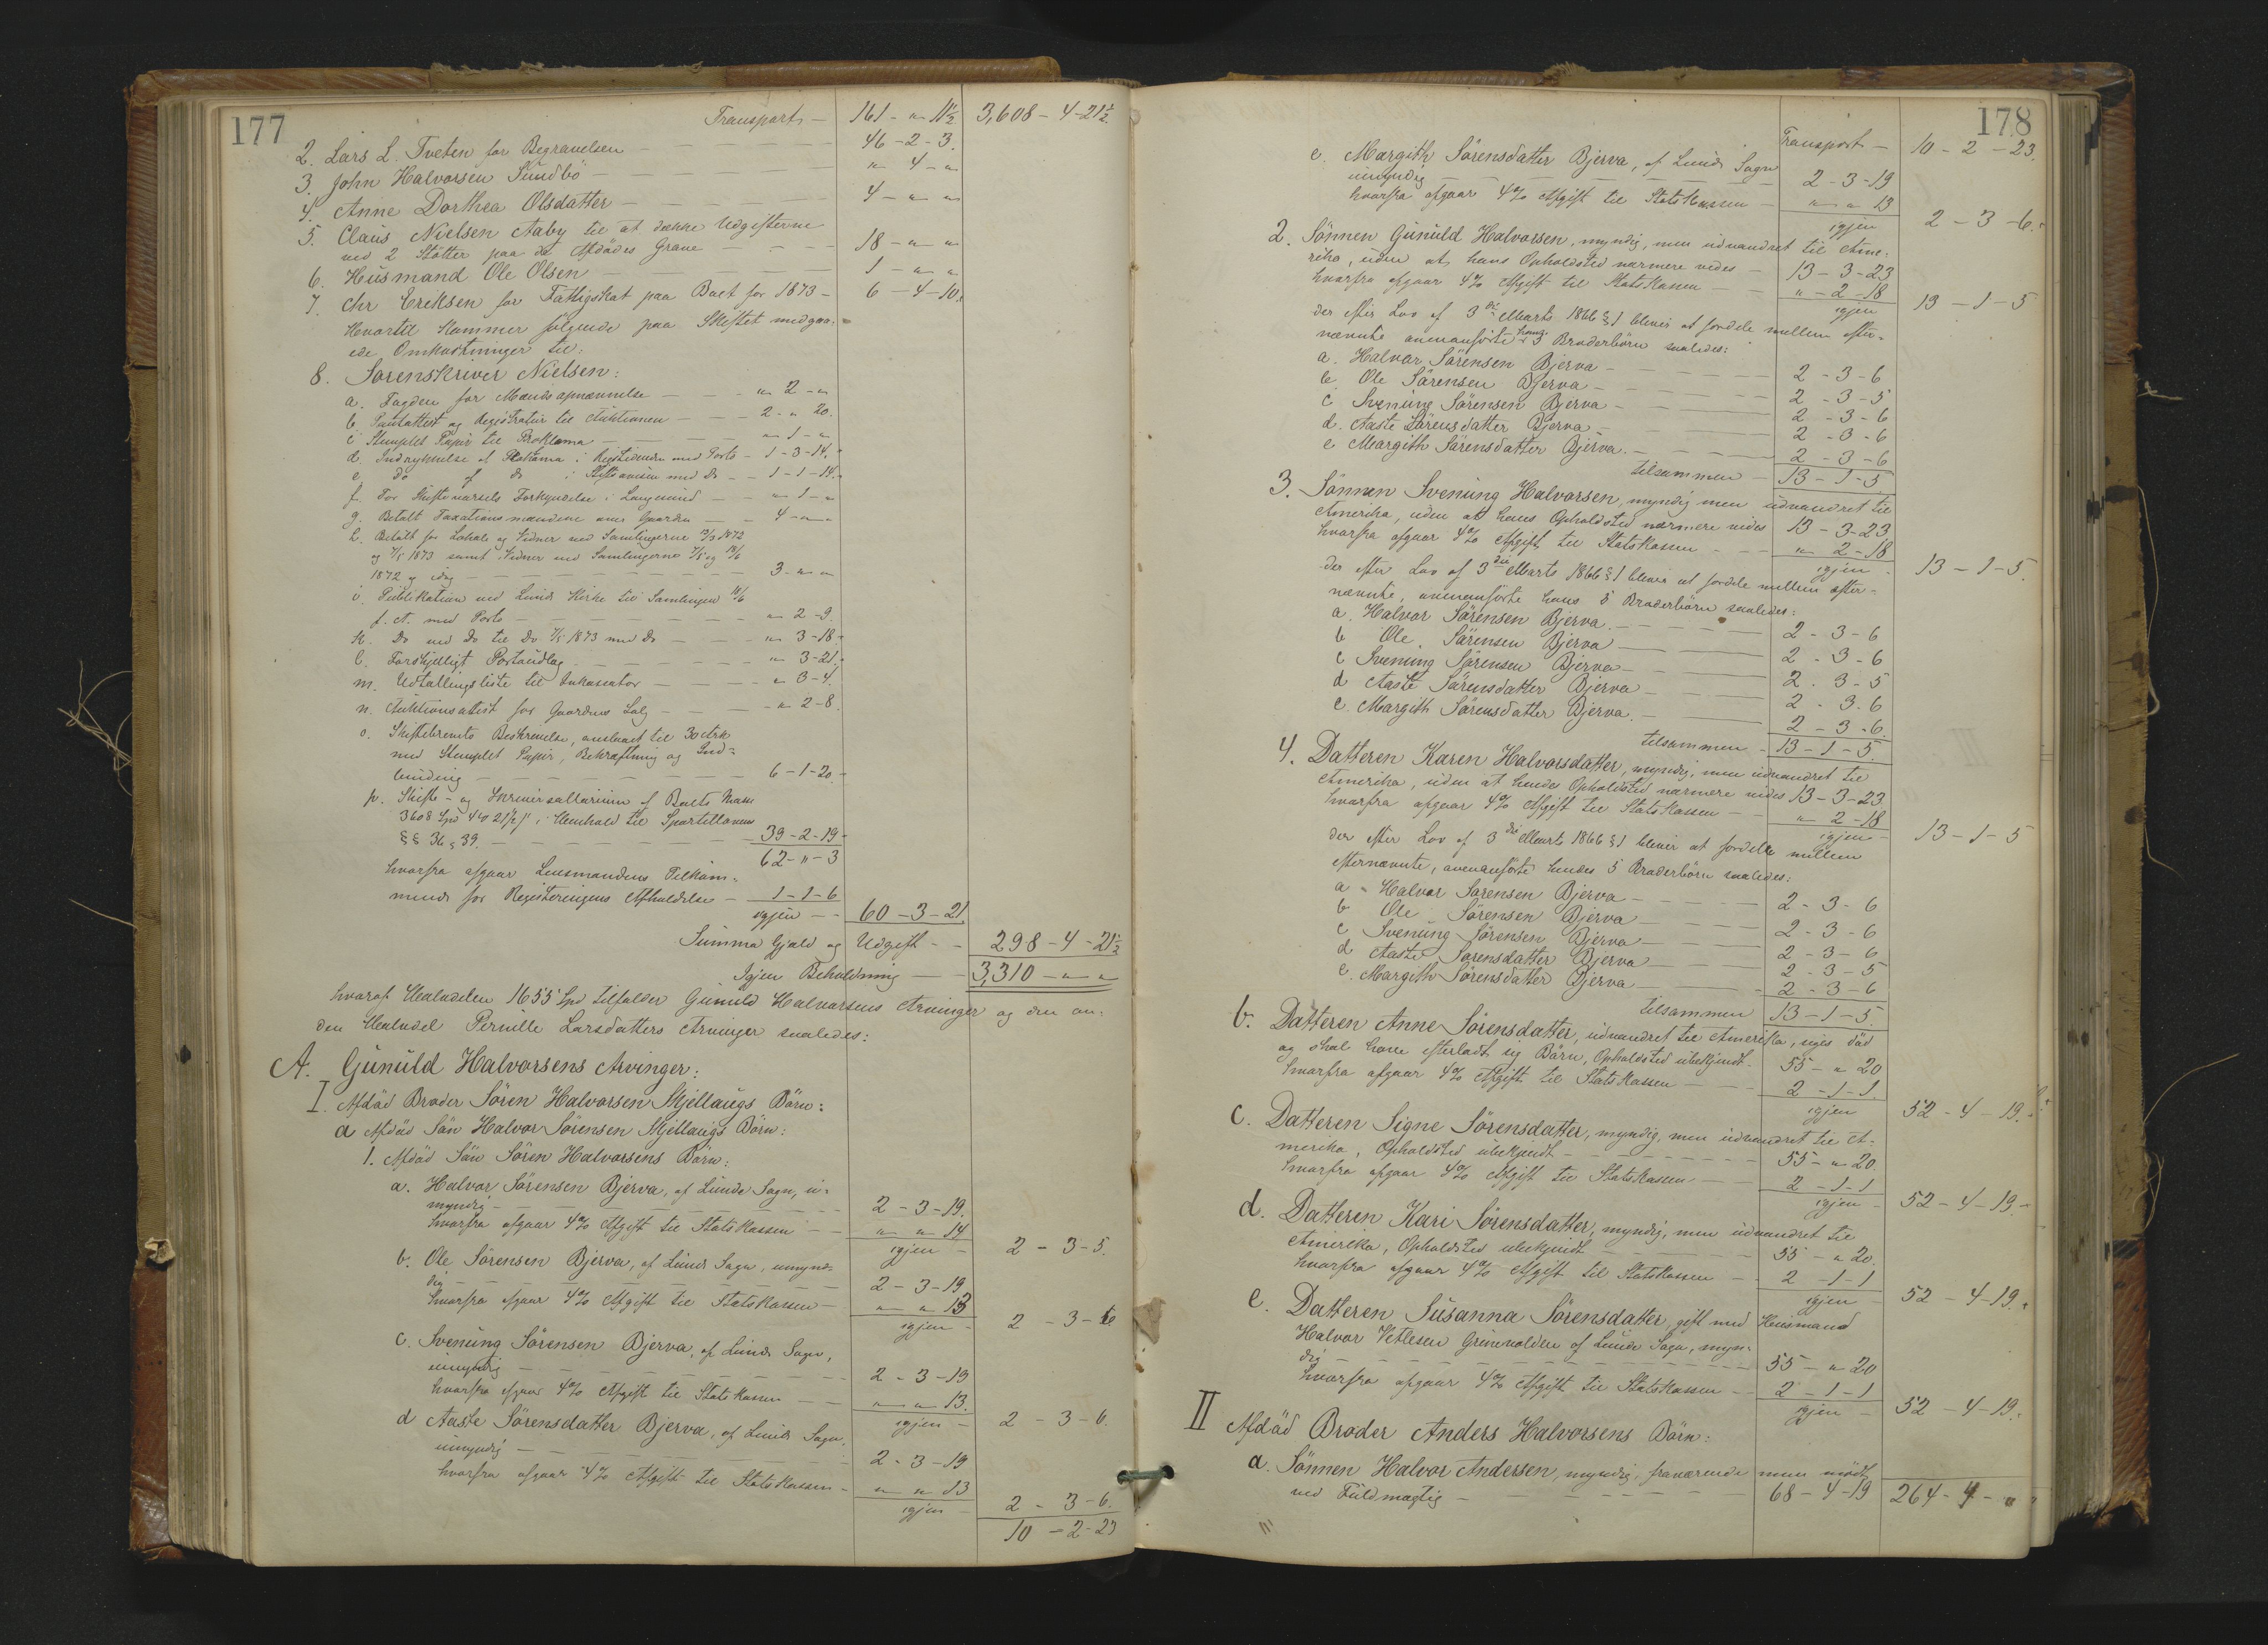 177
Transport — 161 - " 11½ 3,608 - 4 - 21½
2. Lars L. Tveten for Begravelsen — 46 - 2 - 3.
3. John Halvorsen Sundbö — " 4 - "
4. Anne Dorthea Olsdatter — 4 - " "
5. Claus Nielsen Aaby til at dække Udgifterne
ved 2 Stötter paa de Afdödes Grave — 18 - " "
6. Husmand Ole Olsen — 1 - " "
7. Chr Ericksen for Fattigskat paa Boet for 1873 — 6 - 4 - 10.
Hvortil kommer følgende paa Skiftet medgaa-
ede Omkostninger til:
8. Sorenskriver Nielsen:
a. Fogden for Mænds opnævnelse — " 2 - "
b. Pantattest og Registratur til Auktionen — 2 - " 20.
c Stemplet Papir til Proklama — " 1 - "
d. Indrykkelse af Proklama i Rigstidende med Porto — 1 - 3 - 14.
e Do af do i Stiftavisen med Do — 1 - 1 - 14.
f. For Skiftevarsels Forkyndelse i Langesund — " 1 - "
g. Betalt Taxationsmændene over Gaarden — 4 - " "
h. Betalt for Lokale og Vidner ved Samlingerne 1872
og 7/5 1873 samt Vidner ved Samlingerne 7/5 og 18/6
1872 og idag — 3 - " "
i. Publikation ved Lunde Kirke til Samlingen 18/6
f. A. med Porto — " 2 - 9.
k. Do ved Do til Do 7/5 1873 med Do — " 3 - 18.
l. Forskjelligt Portoudlæg — " 3 - 21.
m. Udtallingsliste til Inkassator — " 3 - 4.
n. Auktionsattest for Gaardens Salg — " 2 - 8.
o. Skiftebrevets Beskrivelse, anslaaet til 30 Ark
med Stemplet Papir, Bekræftning og Ind-
binding — 6 - 1 - 20.
p. Skifte- og Skriversallarium af Boets Masse
3608 Spd 4 21½ i Henhold til Sportellovens
§§ 36, 39. — 39 - 2 - 19.
62 - " - 3
hvorfra afgaar Lensmandens Tilkom-
mende for Registeringens Afholdelse — 1 - 1 - 6
igjen — 60 - 3 - 21
Summa Gjæld og Udgift — 298 - 4 - 21½
Igjen Beholdning — 3,310 - " "
hvoraf Halvdelen 1655 Spd tilfalder Gunuld Halvorsens Arvinger og den an-
den Halvdel Pernille Larsdatters Arvinger saaledes:
A. Gunuld Halvorsens Arvinger:
I. Afdöd Broder Sören Halvorsen Mjellaugs Börn:
a Afdöd Sön Halvor Sörensen Mjellaugs Börn:
1. Afdöd Sön Sören Halvorsens Börn:
a. Halvor Sörensen Bjerva, af Lunde Sogn, u-
myndig — 2 - 3 - 19.
hvorfra afgaar 4% Afgift til Statskassen — " " 14
igjen — 2 - 3 - 5.
b. Ole Sörensen Bjerva, af Lunde Sogn, umyn-
dig — 2 - 3 - 19
hvorfra afgaar 4% Afgift til Statskassen — " " 13
igjen — 2 - 3 - 6
c. Svenung Sörensen Bjerva, af Lunde Sogn,
umyndig — 2 - 3 - 19
hvorfra afgaar 4% Afgift til Statskassen — " " 13.
igjen — 2 - 3 - 6.
d Aaste Sörensdatter Bjerva, af Lunde Sogn,
umyndig — 2 - 3 - 19
hvorfra afgaar 4% Afgift til Statskassen — " " 13
igjen — 2 - 3 - 6.
10 - 2 - 23
178
Transport — 10 - 2 - 23.
e. Margith Sörensdatter Bjerva, af Lunde Sogn
umyndig — 2 - 3 - 19
hvorfra afgaar 4% Afgift til Statskassen — " " 13
igjen 2 - 3 - 6.
2. Sönnen Gunuld Halvorsen, myndig, men udvandret til Ame-
rika, uden at hans Opholdsted nærmere vides — 13 - 3 - 23
hvorfra afgaar 4% Afgift til Statskassen — " - 2 - 18
igjen 13 - 1 - 5
der efter Lov af 3die Marts 1866 § 1 bliver at fordele mellem efter-
nævnte ovenanförte hans 5 Broderbörn saaledes:
a. Halvor Sörensen Bjerva — 2 - 3 - 6
b. Ole Sörensen Bjerva — 2 - 3 - 5
c Svenung Sörensen Bjerva — 2 - 3 - 6
d. Aaste Sörensdatter Bjerva — 2 - 3 - 6
e Margith Sörensdatter Bjerva. — 2 - 3 - 6
tilsammen — 13 - 1 - 5
3. Sönnen Svenung Halvorsen, myndig men udvandret til
Amerika, uden at hans Opholdsted nærmere vides 13 - 3 - 23
hvorfra afgaar 4% Afgift til Statskassen — " 2 - 18
igjen - 13 - 1 - 5.
der efter Lov af 3die Marts 1866 § 1 bliver at fordele mellem efter-
nævnte, ovenanförte hans 5 Broderbörn saaledes:
a. Halvor Sörensen Bjerva. — 2 - 3 - 6
b Ole Sörensen Bjerva — 2 - 3 - 6
c Svenung Sörensen Bjerva — 2 - 3 - 5
d Aaste Sörensdatter Bjerva — 2 - 3 - 6
e. Margith Sörensdatter Bjerva. — 2 - 3 - 6.
tilsammen — 13 - 1 - 5.
4. Datteren Karen Halvorsdatter, myndig, men udvandret til
Amerika, uden at hendes Opholdsted nærmere vides 13 - 3 - 23
hvorfra afgaar 4% Afgift til Statskassen — " 2 - 18
igjen — 13 - 1 - 5
der efter Lov af 3die Marts 1866 § 1 bliver at fordele mellem
efternævnte, ovenanförte hendes 5 Broderbörn saaledes:
a Halvor Sörensen Bjerva — 2 - 3 - 6
b Ole Sörensen Bjerva — 2 - 3 - 6
c Svenung Sörensen Bjerva — 2 - 3 - 6
d Aaste Sörensdatter Bjerva — 2 - 3 - 5
e. Margith Sörensdatter Bjerva — 2 - 3 - 6
tilsammen 13 - 1 - 5.
b. Datteren Anne Sörensdatter, udvandret til Amerika, siges död
og skal have efterladt sig Börn, Opholdsted ubekjendt. 55 - " 20
hvorfra afgaar 4% Afgift til Statskassen — 2 - 1 - 1.
igjen 52 - 4 - 19.
c. Datteren Signe Sörensdatter, myndig, men udvandret til A-
merika, Opholdsted ubekjendt — 55 - " 20.
hvorfra afgaar 4% Afgift til Statskassen — 2 - 1 - 1
igjen — 52 - 4 - 19.
d. Datteren Kari Sörensdatter, myndig, men udvandret til
Amerika, Opholdsted ubekjendt — 55 - " 20.
hvorfra afgaar 4% Afgift til Statskassen — 2 - 1 - 1
igjen — 52 - 4 - 19.
e. Datteren Susanna Sörensdatter, gift med Husmand
Halvor Vetlesen Grimvolden af Lunde Sogn, myn-
dig — 55 - " 20
hvorfra afgaar 4% Afgift til Statskassen — 2 - 1 - 1
igjen — 52 - 4 - 19.
II Afdöd Broder Anders Halvorsens Börn:
a. Sönnen Halvor Andersen, myndig, fraværende men mödt
ved Fuldmægtig — 68 - 4 - 19 264 - 4 - "